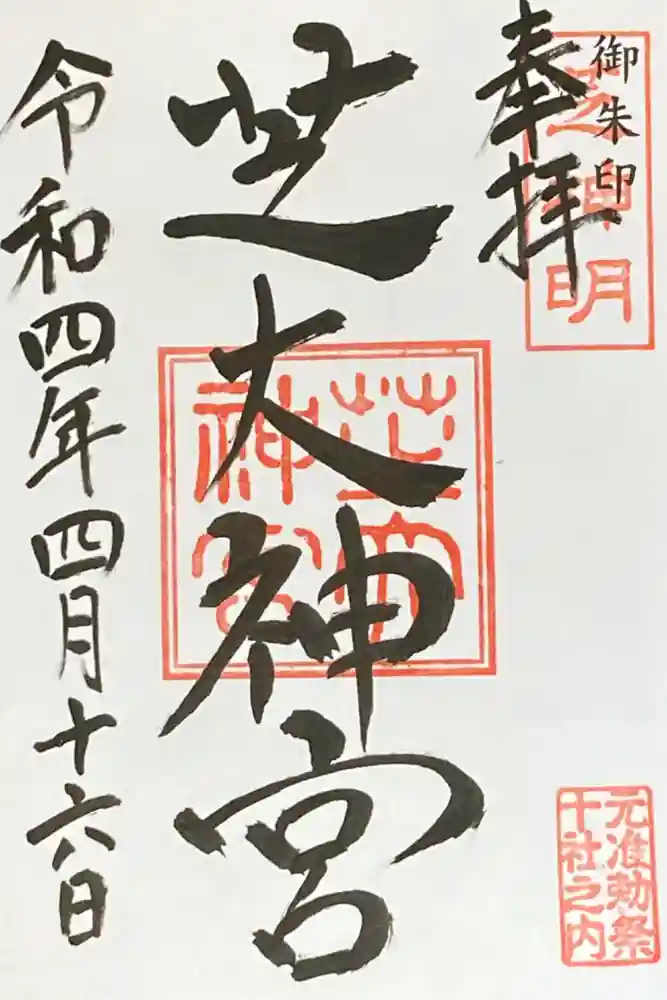 御朱印
奉拝
芝神明
芝大神宮
芝大
神宮
令和四年四月十六日
元准勅祭
十社之内